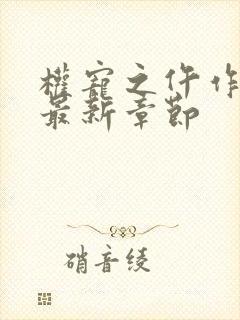 權寵之仵作
最新章節
硝音绫